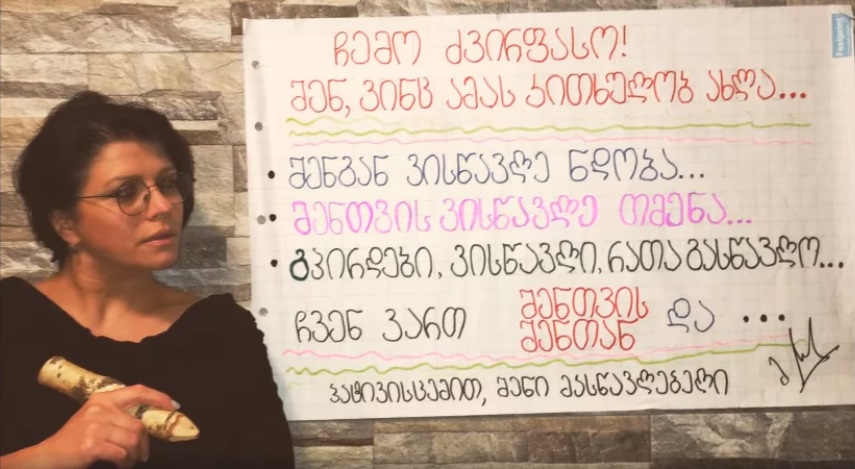 ჩემო ძვირფასო!
შენ, ვინც ამას კითხულობ ახლა...
• შენგან ვისწავლე ნდობა...
• შენთვის ვისწავლე თმენა...
• გპირდები, ვისწავლი, რათა გასწავლო...
ჩვენ ვართ შენთვის შენთან და ...
პატივისცემით, შენი მასწავლებელი